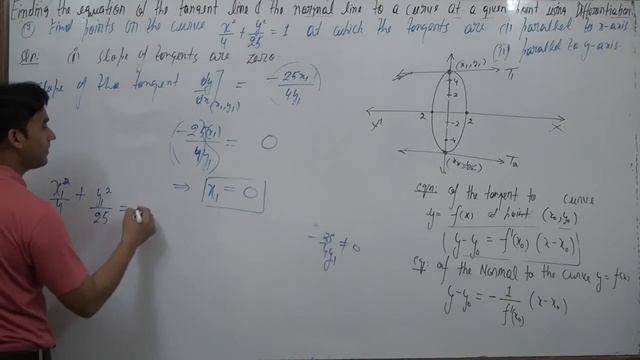 Finding the equation of the tangent line & the normal line to a curve at a given point using Differentiation
Find points on the curve x²/4 + y²/25 = 1 at which the tangents are (i) parallel to x-axis
(ii) parallel to y-axis.
Soln: (i) slope of tangents are zero.
slope of the tangent dy/dx](x₁,y₁) = -25x₁/4y₁
(-25(x₁)/4y₁) = 0
⇒ x₁ = 0
x₁²/4 + y₁²/25 =
-25/4y₁ ≠ 0
(x₁,y₁) T₁
4
2
X' 2 2 X
-2
-4
T₂
eqn: of the tangent to curve
y = f(x) at point (x₀,y₀)
y-y₀ = f'(x₀) (x-x₀)
eq: of the Normal to the curve y = f(x)
y-y₀ = -1/f'(x₀) (x-x₀)